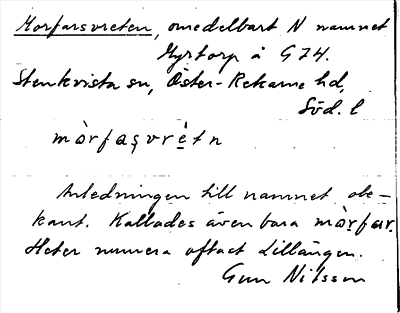 Morfarsvreten, omedelbart N namnet
Myrtorp å G74.
Stenkvista sn, Öster-Rekarne hd,
Söd. l
mòrfaṣvrètn
Anledningen till namnet obe-
kant. Kallades även bara mòrfar.
Heter numera oftast Lillängen.
Gun Nilsson